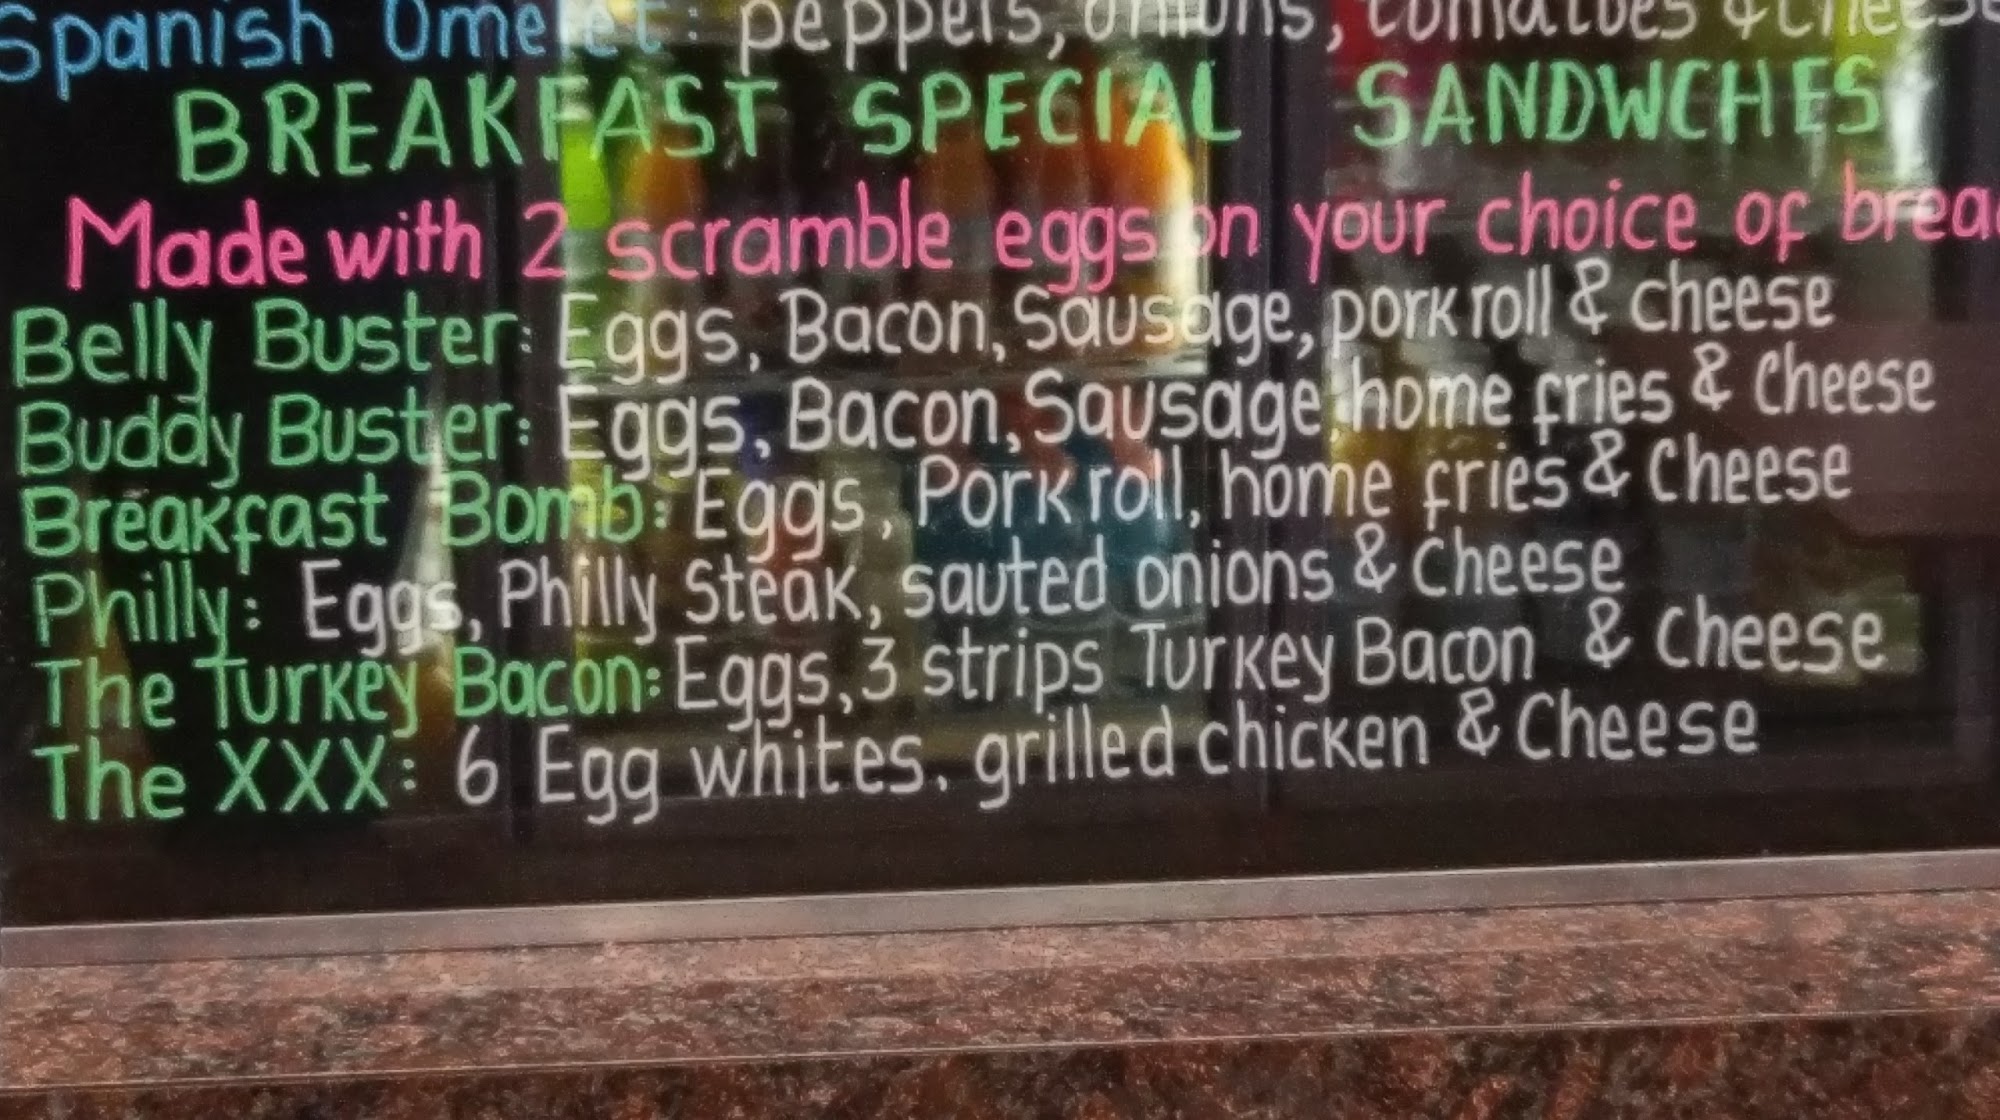 Spanish Omelet: peppers, onions, tomatoes & cheese
BREAKFAST SPECIAL SANDWCHES
Made with 2 scramble eggs on your choice of brea
Belly Buster: Eggs, Bacon, Sausage, pork roll & cheese
Buddy Buster: Eggs, Bacon, Sausage, home fries & Cheese
Breakfast Bomb: Eggs, Pork roll, home fries & Cheese
Philly: Eggs, Philly Steak, sauted onions & Cheese
The Turkey Bacon: Eggs, 3 strips Turkey Bacon & Cheese
The XXX: 6 Egg whites. grilled chicken & Cheese